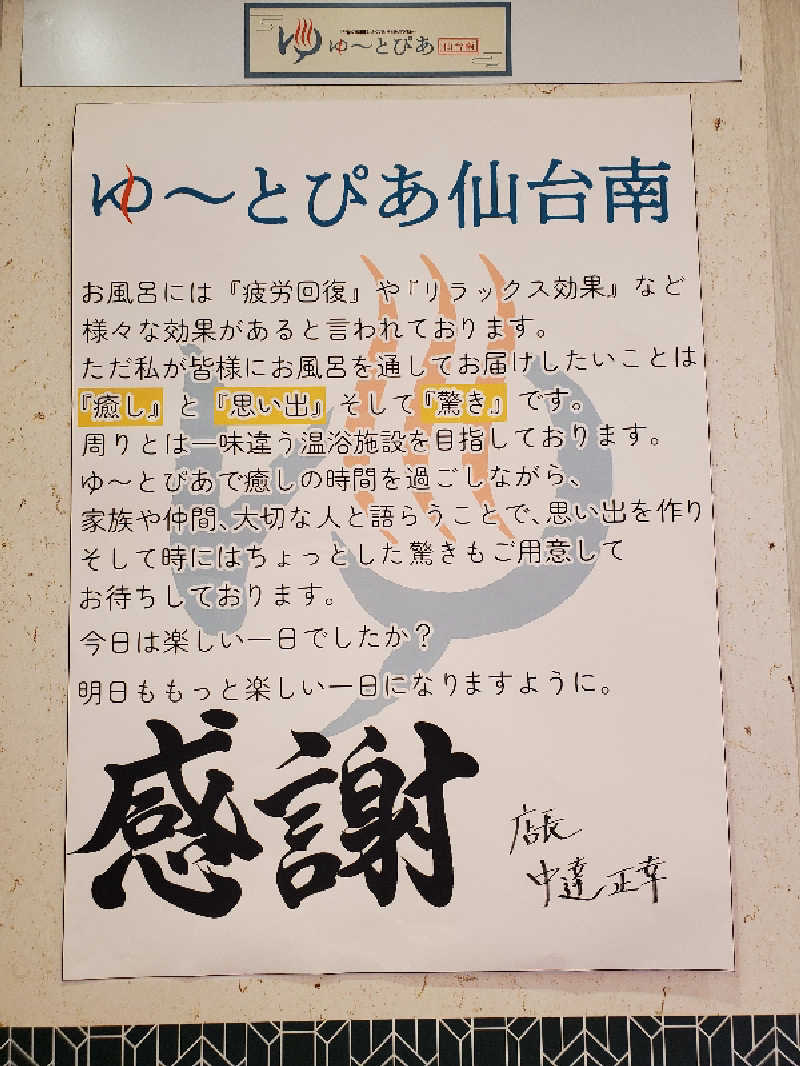 ゆ〜とぴあ 仙台南
ゆ〜とぴあ仙台南
お風呂には『疲労回復』や『リラックス効果』など
様々な効果があると言われております。
ただ私が皆様にお風呂を通してお届けしたいことは
『癒し』と『思い出』そして『驚き』です。
周りとは一味違う温浴施設を目指しております。
ゆ〜とぴあで癒しの時間を過ごしながら、
家族や仲間、大切な人と語らうことで、思い出を作り
そして時にはちょっとした驚きもご用意して
お待ちしております。
今日は楽しい一日でしたか？
明日ももっと楽しい一日になりますように。
感謝
店長
中達正幸